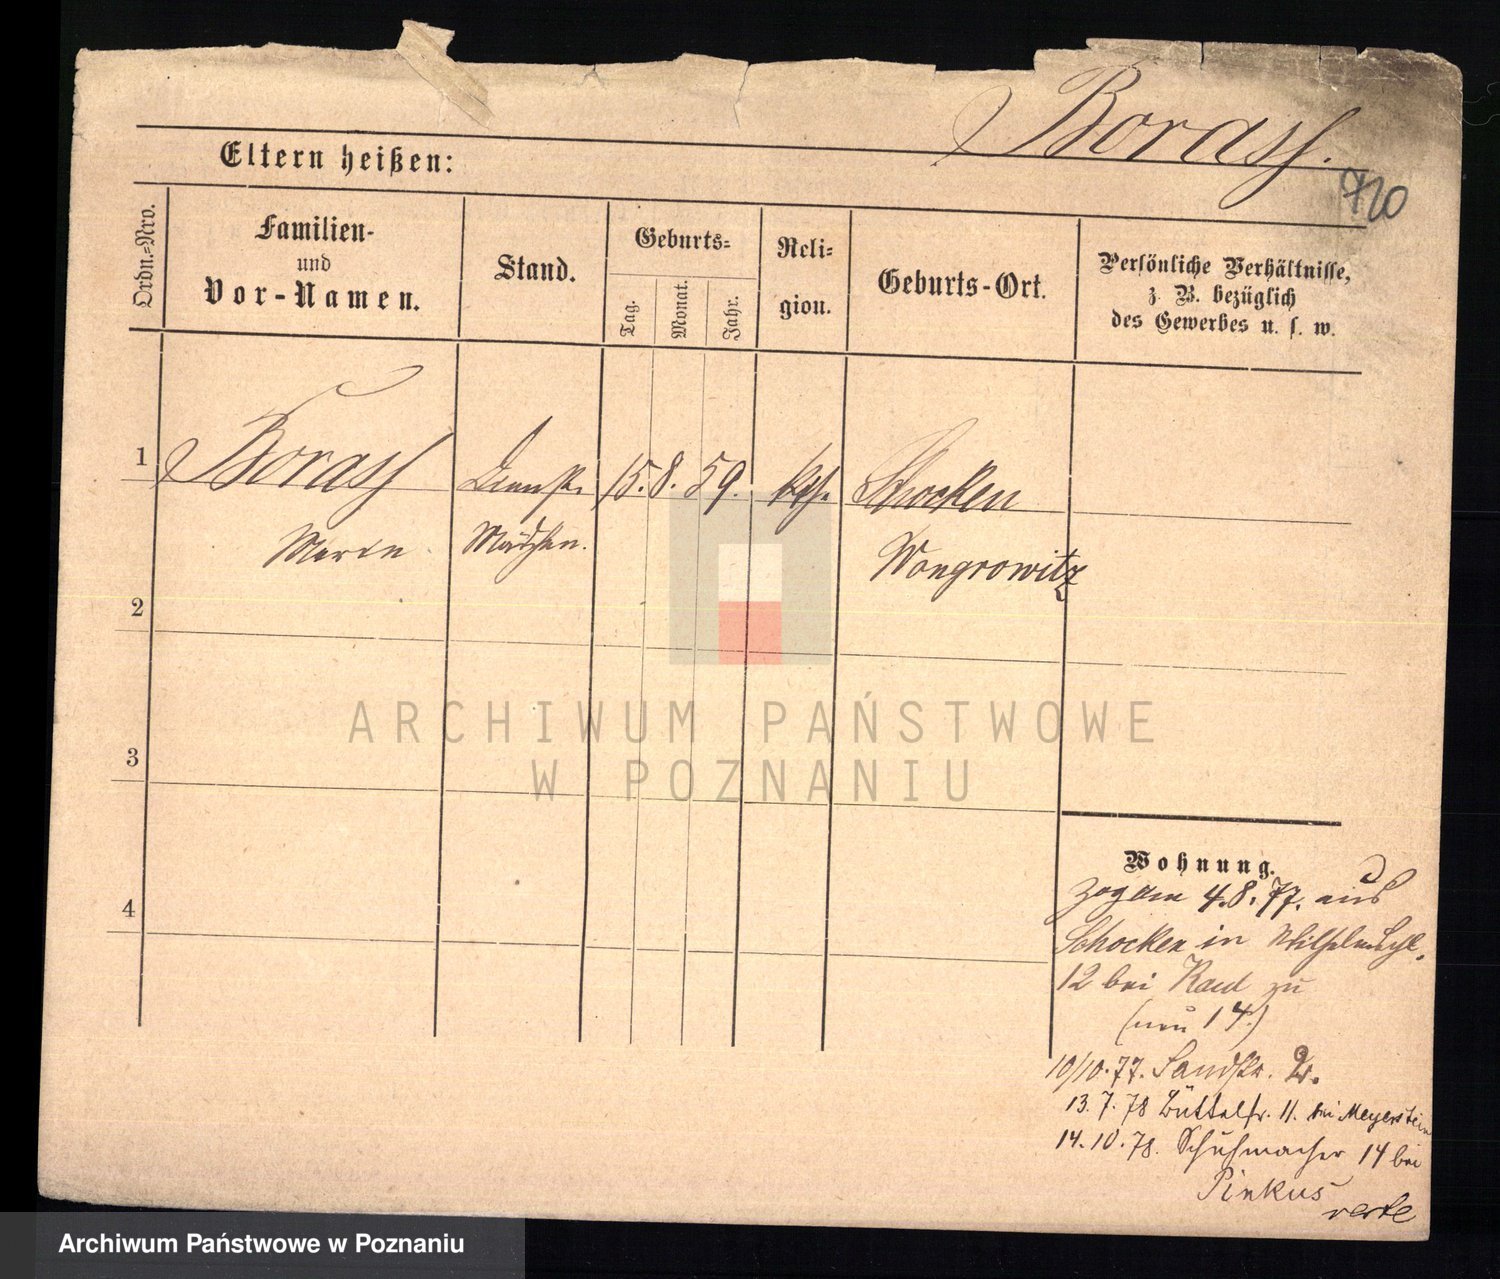 Borass.
Eltern heißen:
710
Ordn.-Nro.
Familien-
und
Vor-Namen.
Stand.
Geburts-
Tag.
Monat.
Jahr.
Reli-
gion.
Geburts-Ort.
Persönliche Verhältnisse,
z. B. bezüglich
des Gewerbes u. s. w.
1
Borass
Dienst-
15. 8. 59.
kth.
Schocken
Marie
Mädchen.
Wongrowitz
2
3
4
ARCHIWUM PAŃSTWOWE
W POZNANIU
Wohnung.
zog am 4. 8. 77. aus
Schocken in
12 bei zu
(neu 14)
10/10. 77. Sandstr. 2.
13. 7. 78 Büttelstr. 11. bei Meyerstein
14. 10. 78. Schuhmacher 14 bei
Pinkus
verte
Archiwum Państwowe w Poznaniu